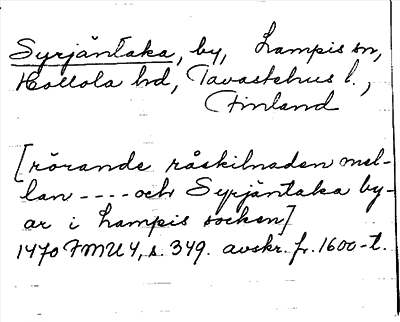 Syrjäntaka, by, Lampis sn,
Hollola hd, Tavastehus l.,
Finland
[rörande råskilnaden mel-
lan ---- och Syrjäntaka by-
ar i Lampis socken]
1470 FMU 4, s. 349. avskr. fr. 1600-t.